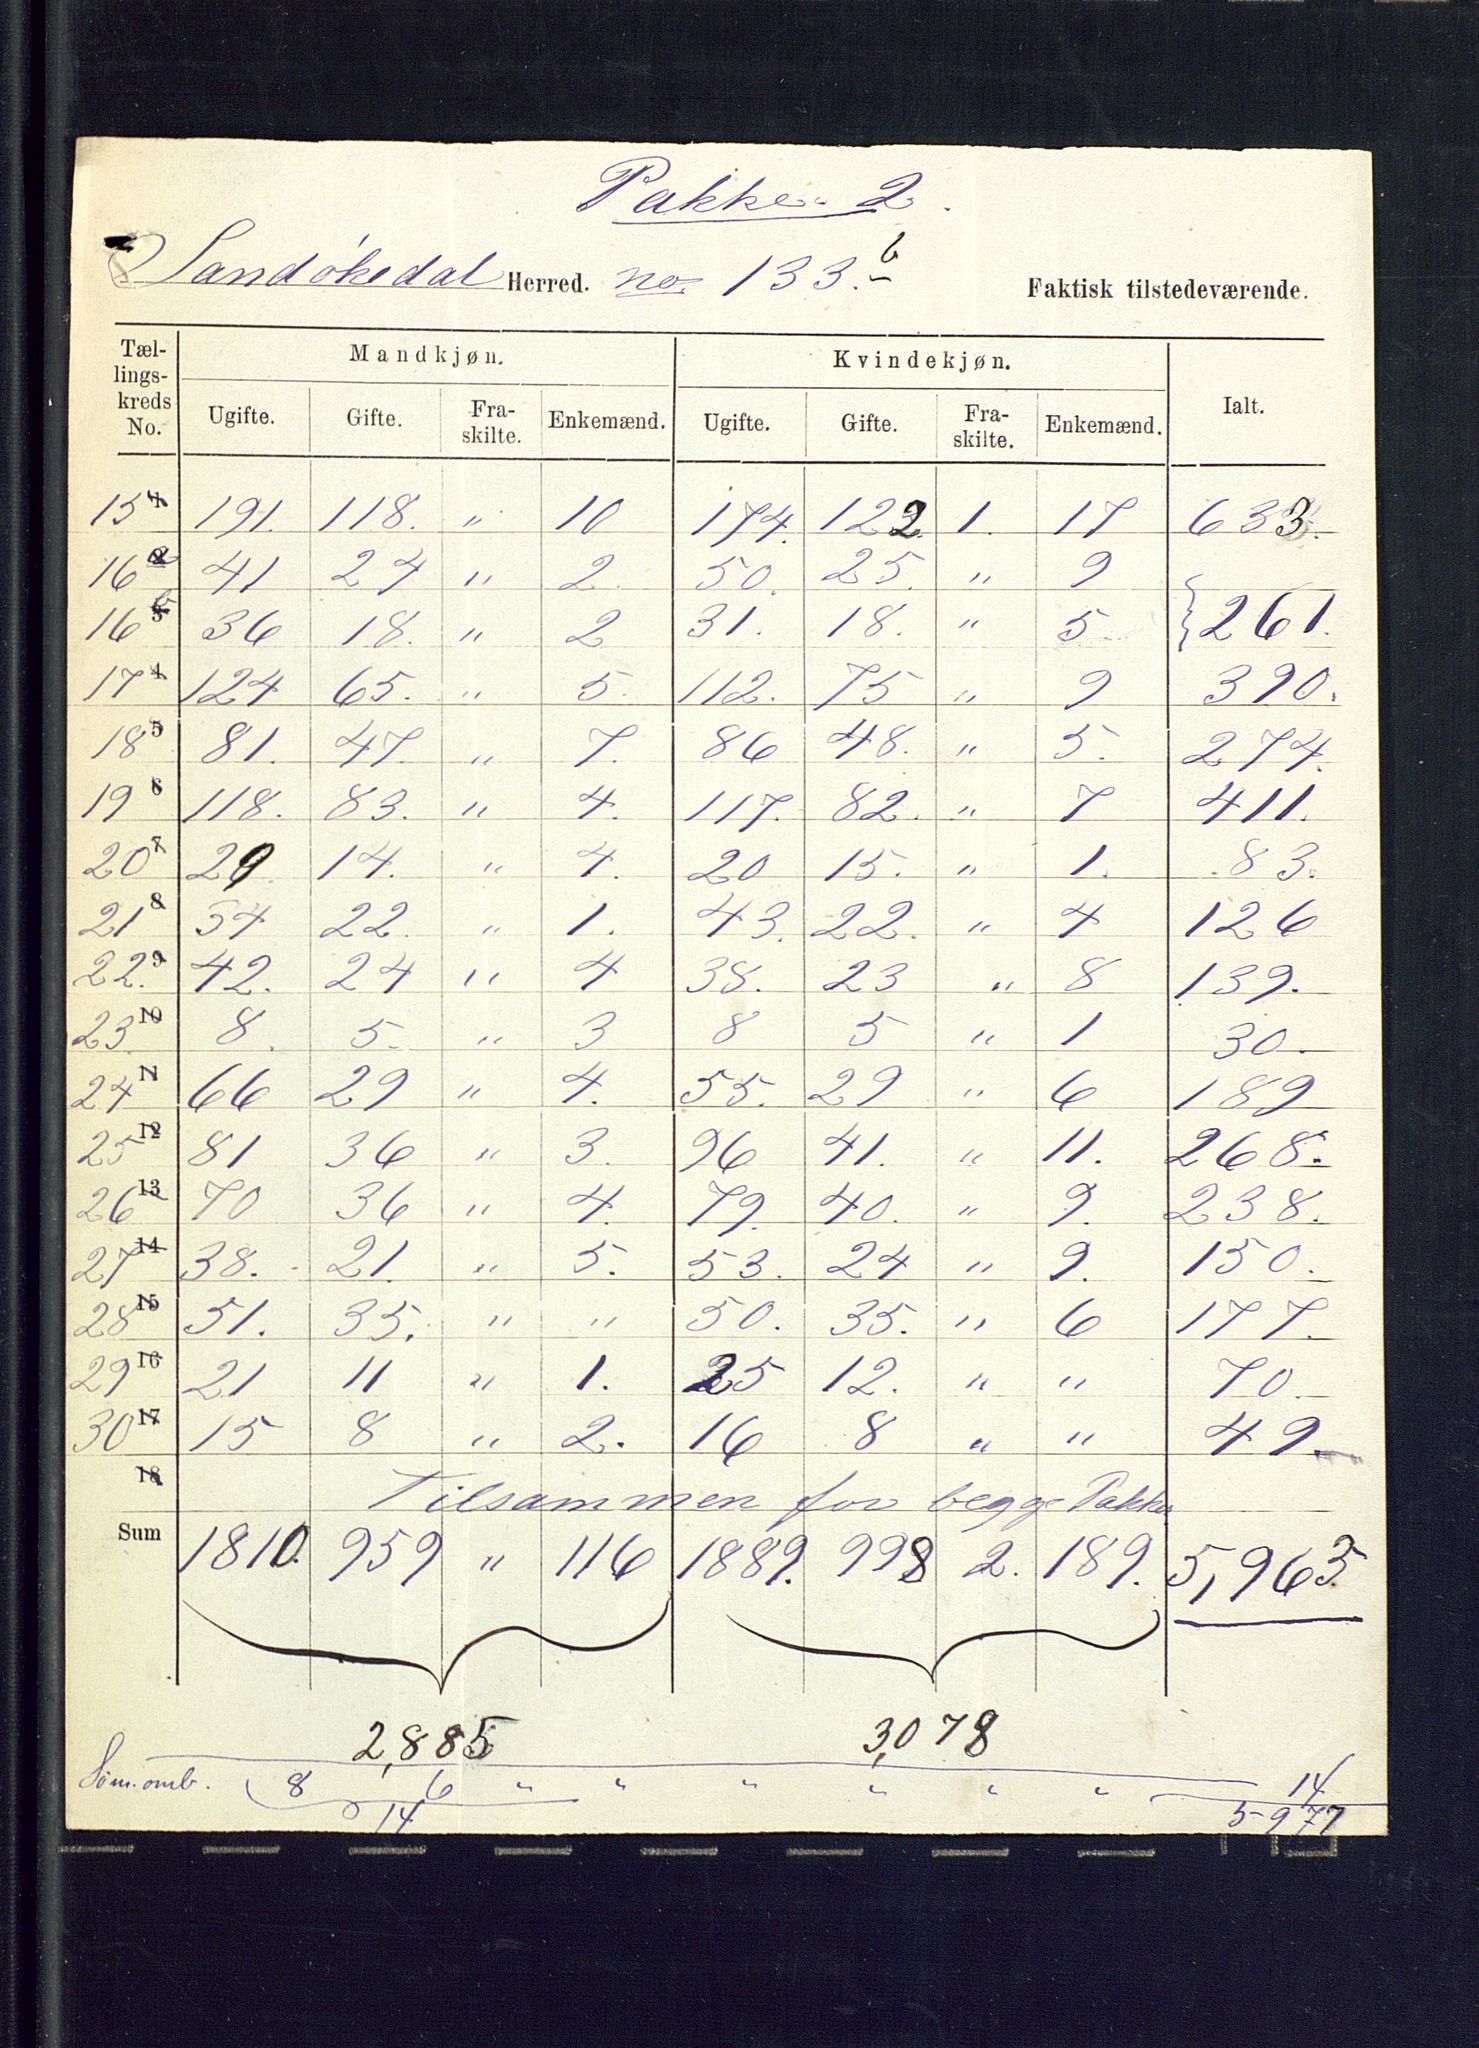 Pakke 2.
Sandøkedal Herred. no. 133.b Faktisk tilstedeværende.
Tællingskreds No. Mandkjøn. Kvindekjøn. Ialt.
Ugifte. Gifte. Fraskilte. Enkemænd. Ugifte. Gifte. Fraskilte. Enkemænd.
15 191. 118. " 10 174. 122. 1. 17 633.
16a 41 24 " 2 50. 25. " 9
16b 36 18. " 2 31. 18. " 5 } 261.
17 124 65. " 5. 112. 75 " 9 390.
18 81. 47. " 7. 86 48. " 5. 274.
19 118. 83. " 4. 117. 82. " 7 411.
20 29 14. " 4. 20 15. " 1. 83.
21 34 22. " 1. 43. 22. " 4 126
22. 42. 24 " 4 38. 23 " 8 139.
23 8. 5. " 3 8 5 " 1 30.
24 66 29 " 4. 55. 29 " 6 189
25 81 36 " 3. 96 41. " 11. 268.
26 70 36 " 4. 79. 40. " 9. 238.
27 38. 21. " 5. 53. 24 " 9. 150.
28 51. 35. " " 50. 35. " 6 177.
29 21 11 " 1. 25 12. " " 70.
30 15 8 " 2. 16 8 " " 49.
18 Tilsammen for begge Pakker
Sum 1810. 959 " 116 1889. 998 2. 189. 5,963
2,885 3,078
Søm. omb. 8 6 " " " " " " 14
14 5977